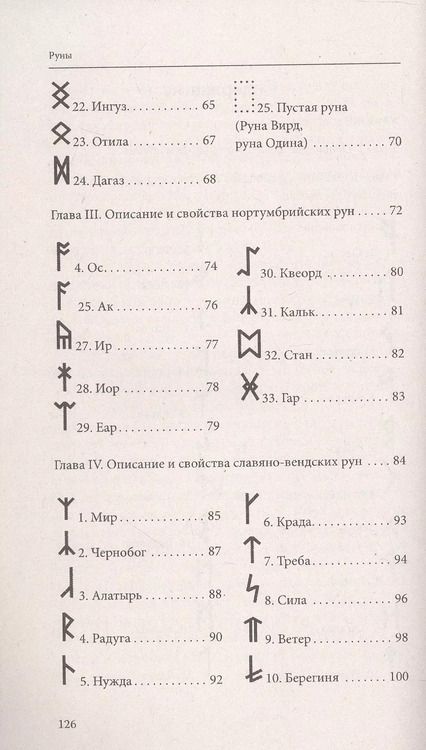 Руны
22. Ингуз............ 65
23. Отила ............ 67
24. Дагаз ............ 68
25. Пустая руна
(Руна Вирд,
руна Одина) ............ 70
Глава III. Описание и свойства нортумбрийских рун ..... 72
4. Ос............... 74
25. Ак ............. 76
27. Ир ............. 77
28. Иор ............ 78
29. Еар............. 79
30. Квеорд ......... 80
31. Кальк........... 81
32. Стан ........... 82
33. Гар ............ 83
Глава IV. Описание и свойства славяно-вендских рун .... 84
1. Мир.............. 85
2. Чернобог ........ 87
3. Алатырь ......... 88
4. Радуга .......... 90
5. Нужда ........... 92
6. Крада............ 93
7. Треба ........... 94
8. Сила ............ 96
9. Ветер ........... 98
10. Берегиня ....... 100
126